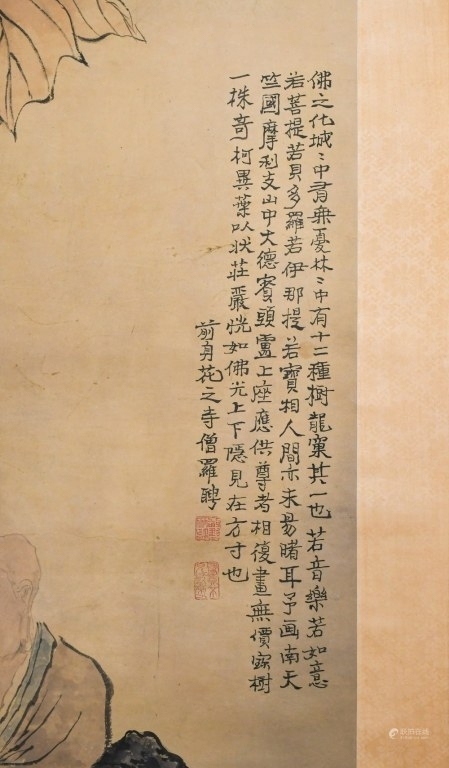 佛之化城〻中有無憂林〻中有十二種樹龍窠其一也若音樂若如意
若菩提若貝多羅若伊那提若寶相人間亦未易睹耳予画南天
竺國摩利支山中大德賓頭盧上座應供尊者相復畫無價寶樹
一株奇柯異葉以狀莊嚴恍如佛光上下隱見在方寸也
前身花之寺僧羅聘